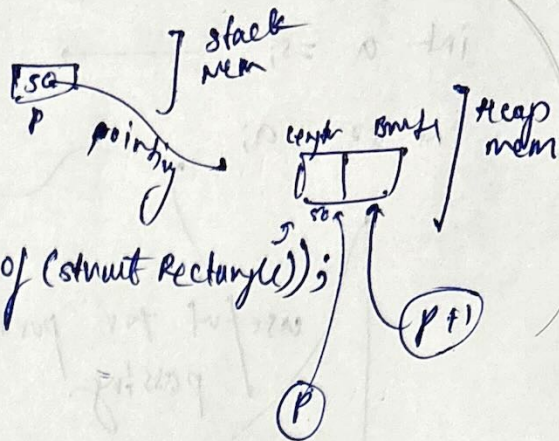 stack
mem
50
P
pointing
length Breadth
Heap
mem
50
of (struct Rectangle));
P+1
P